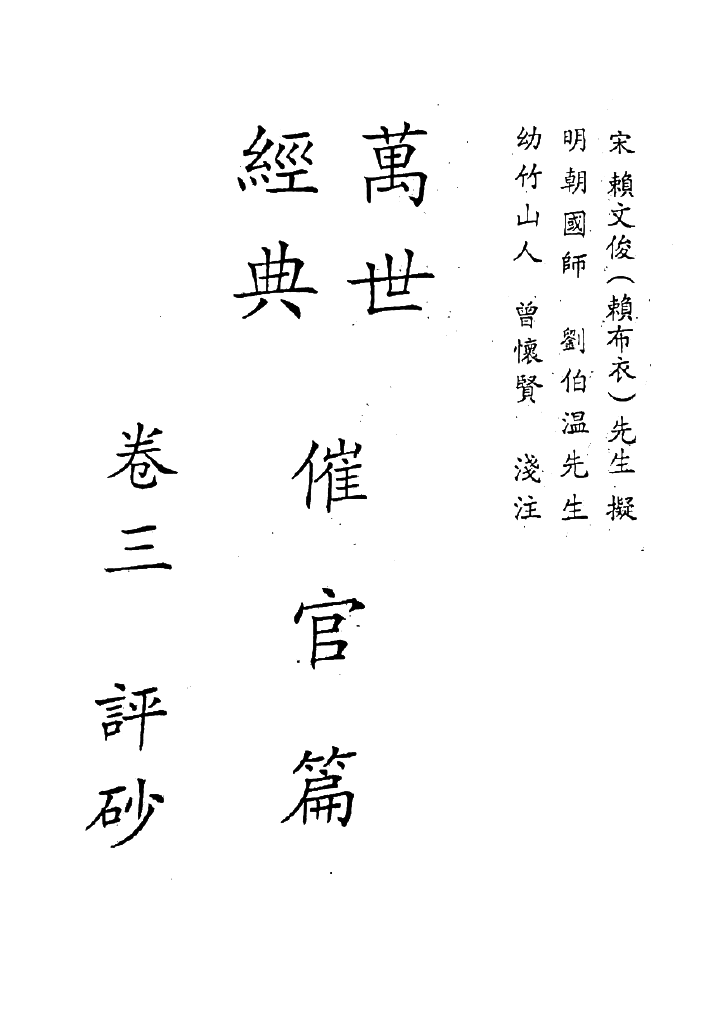 宋 賴文俊(賴布衣)先生 擬
明朝國師 劉伯温先生
幼竹山人 曾懷賢 淺注
萬世
經典
催官篇
卷三 評砂